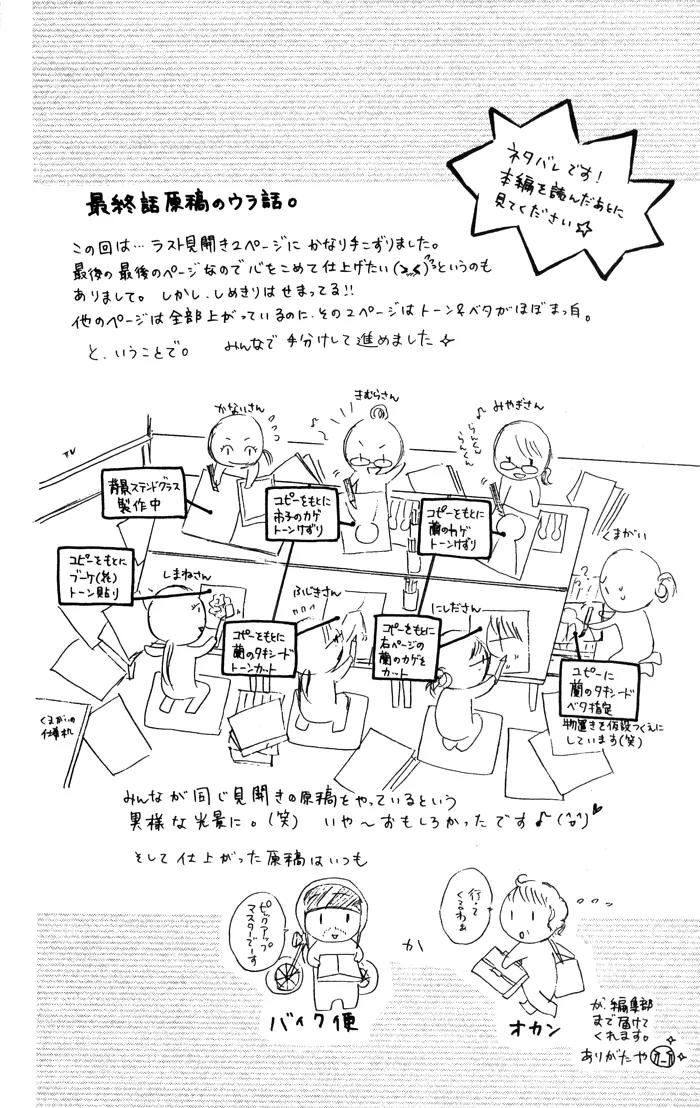 ネタバレです!
本編を読んだあとに
見てください☆
最終話原稿のウラ話。
この回は…ラスト見開き2ページに かなり手こずりました。
最後の最後のページなので心をこめて仕上げたい というのも
ありまして。しかし、しめきりはせまってる!!
他のページは全部上がっているのに、その2ページはトーン&ベタがほぼまっ白。
と、いうことで。 みんなで手分けして進めました☆
かないさん
きむらさん
みやぎさん
らんらん
らんくん
TV
背景ステンドグラス
製作中
コピーをもとに
市子のカゲ
トーンけずり
コピーをもとに
蘭のカゲ
トーンけずり
くまがい
コピーをもとに
ブーケ(花)
トーン貼り
しまねさん
ふじきさん
にしださん
コピーをもとに
蘭のタキシード
トーンカット
コピーをもとに
右ページの
蘭のカゲを
カット
コピーに
蘭のタキシード
ベタ指定
物置きを仮設つくえに
しています(笑)
くまがいの
仕事机
みんなが同じ見開きの原稿をやっているという
異様な光景に。(笑) いや〜おもしろかったです♪
そして仕上がった原稿はいつも
ピックアップ
マスターです
バイク便
か
行って
くるわぁ
オカン
が編集部
まで届けて
くれます。
ありがたや